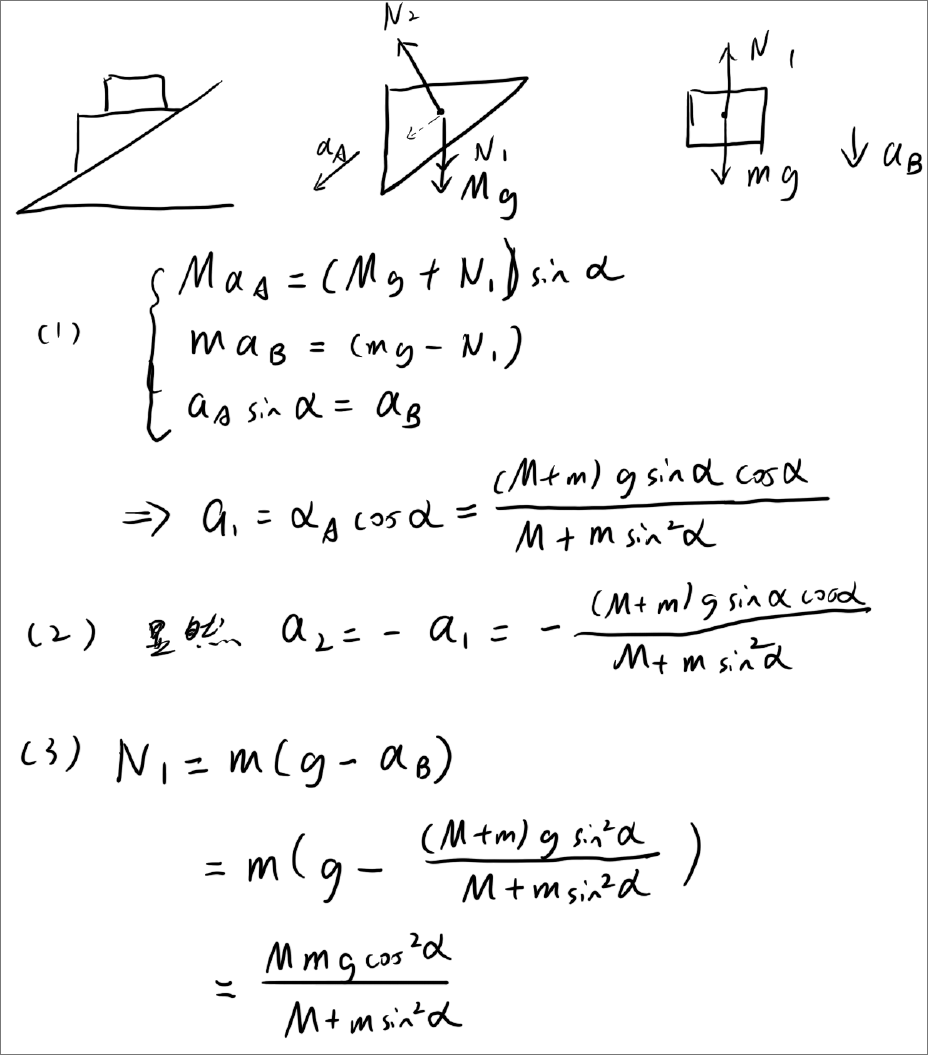 N₂
N₁
a_A
N₁
Mg
mg
a_B
(1)
Ma_A = (Mg + N₁) sin α
ma_B = (mg - N₁)
a_A sin α = a_B
⇒ a₁ = a_A cos α = (M+m) g sin α cos α / M + m sin²α
(2) 显然 a₂ = - a₁ = - (M+m) g sin α cos α / M + m sin²α
(3) N₁ = m(g - a_B)
= m(g - (M+m) g sin²α / M + m sin²α)
= M m g cos²α / M + m sin²α